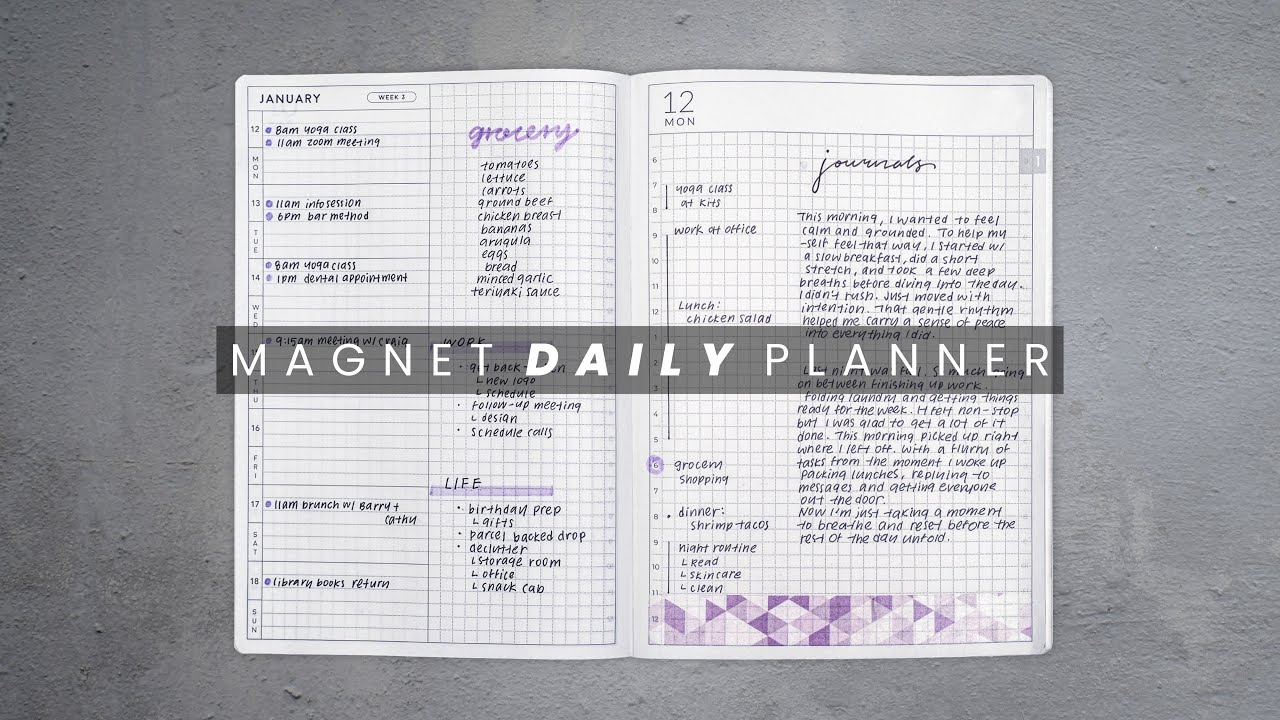 JANUARY
WEEK 3
12
MON
8am yoga class
11am zoom meeting
13
TUE
11am info session
6pm bar method
14
WED
8am yoga class
1pm dental appointment
THU
9:15am meeting w/ craig
16
FRI
17
SAT
11am brunch w/ Barry +
Cathy
18
SUN
library books return
grocery
tomatoes
lettuce
carrots
ground beef
chicken breast
bananas
arugula
eggs
bread
minced garlic
teriyaki sauce
WORK
get back
new logo
schedule
follow-up meeting
design
schedule calls
LIFE
birthday prep
gifts
parcel backed drop
declutter
storage room
office
snack cab
MAGNET DAILY PLANNER
12
MON
1
6
7
8
9
10
11
12
3
4
5
6
7
8
9
10
11
12
yoga class
at kits
work at office
Lunch:
chicken salad
grocery
shopping
dinner:
shrimp tacos
night routine
Read
skincare
clean
journals
This morning, I wanted to feel
calm and grounded. To help my
-self feel that way, I started w/
a slow breakfast, did a short
stretch, and took a few deep
breaths before diving into the day.
I didn't rush. Just moved with
intention. That gentle rhythm
helped me carry a sense of peace
into everything I did.
Last night was
on between finishing up work.
Folding laundry and getting things
ready for the week. It felt non-stop
but I was glad to get a lot of it
done. This morning picked up right
where I left off. With a flurry of
tasks from the moment I woke up
packing lunches, replying to
messages and getting everyone
out the door.
Now I'm just taking a moment
to breathe and reset before the
rest of the day unfold.